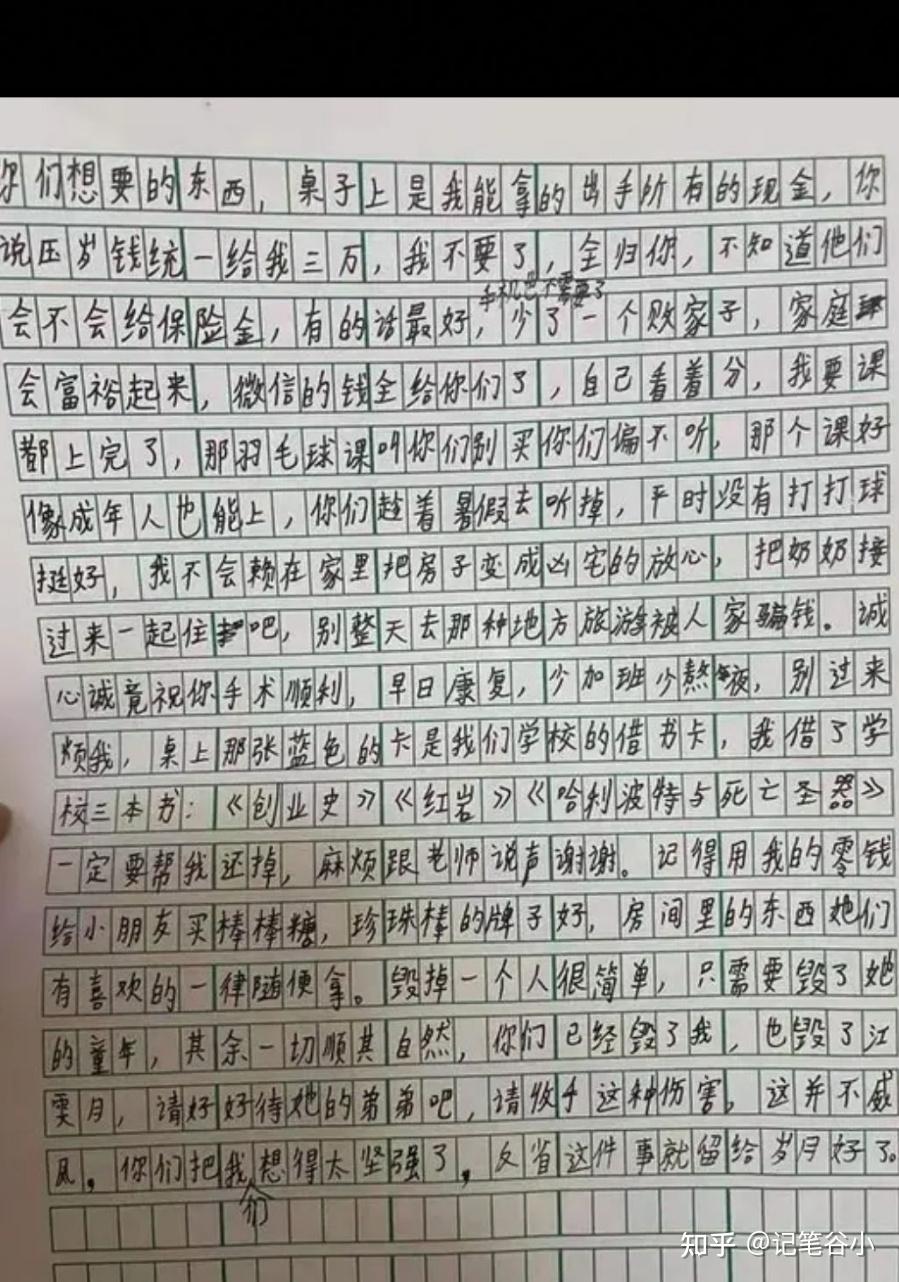 你们想要的东西，桌子上是我能拿的出手所有的现金，你
说压岁钱统一给我三万，我不要了，全归你，不知道他们
手机也不需要了
会不会给保险金，有的话最好，少了一个败家子，家庭
会富裕起来，微信的钱全给你们了，自己看着分，我要课
都上完了，那羽毛球课叫你们别买你们偏不听，那个课好
像成年人也能上，你们趁着暑假去听掉，平时没有打打球
挺好，我不会赖在家里把房子变成凶宅的放心，把奶奶接
过来一起住吧，别整天去那种地方旅游被人家骗钱。诚
心诚竟祝你手术顺利，早日康复，少加班少熬夜，别过来
烦我，桌上那张蓝色的卡是我们学校的借书卡，我借了学
校三本书：《创业史》《红岩》《哈利波特与死亡圣器》
一定要帮我还掉，麻烦跟老师说声谢谢。记得用我的零钱
给小朋友买棒棒糖，珍珠棒的牌子好，房间里的东西她们
有喜欢的一律随便拿。毁掉一个人很简单，只需要毁了她
的童年，其余一切顺其自然，你们已经毁了我，也毁了江
雯月，请好好待她的弟弟吧，请收手这种伤害。这并不威
风，你们把我想得太坚强了，反省这件事就留给岁月好了。
们
知乎 @记笔谷小